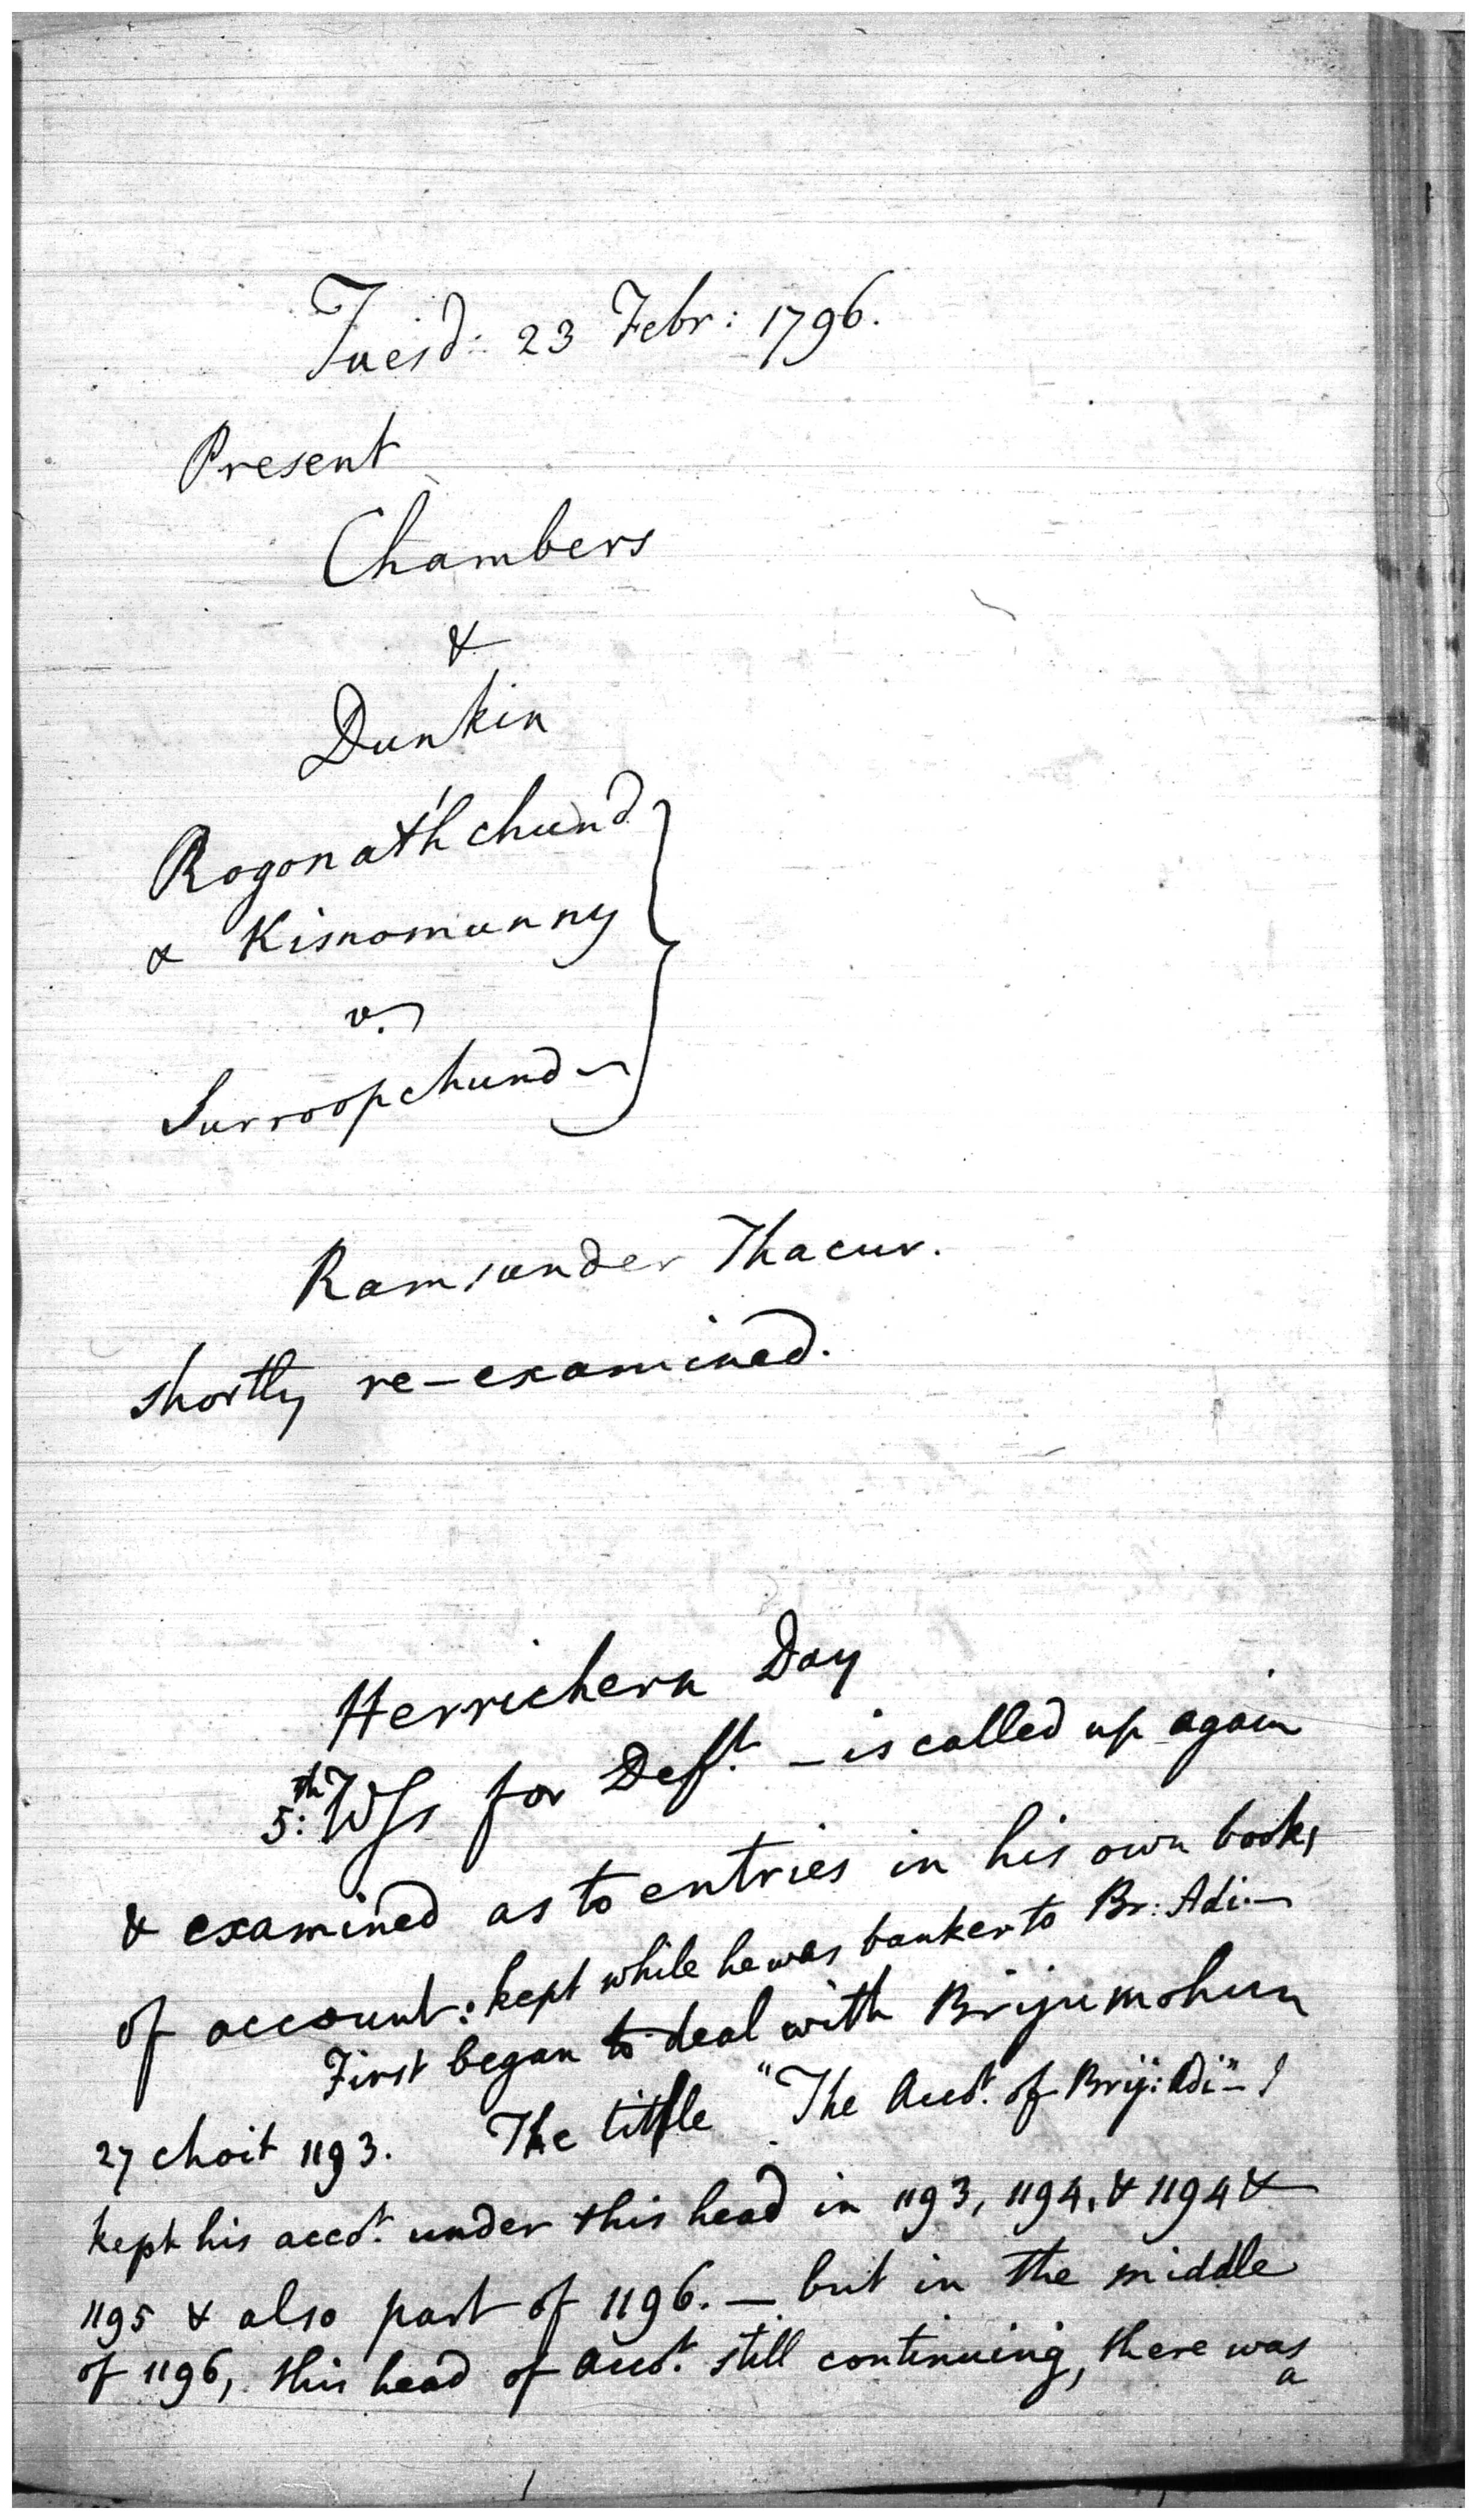 Tuesd: 23 Febr: 1796.
Present
Chambers
&
Dunkin
Rogonathchund
& Kisnomunny
v.
Surroopchund
Ramsunder Thacur.
shortly re-examined.
Herrichern Day
5:th Wss for Deft. - is called up again
& examined as to entries in his own books
of account: kept while he was banker to Br: Adi:-
First began to deal with Brijumohun
27 choit 1193. The title "The Acct. of Brij: Adi"-
kept his acct. under this head in 1193, 1194, & 1194 &
1195 & also part of 1196. - but in the middle
of 1196, this head of acct. still continuing, there was
a